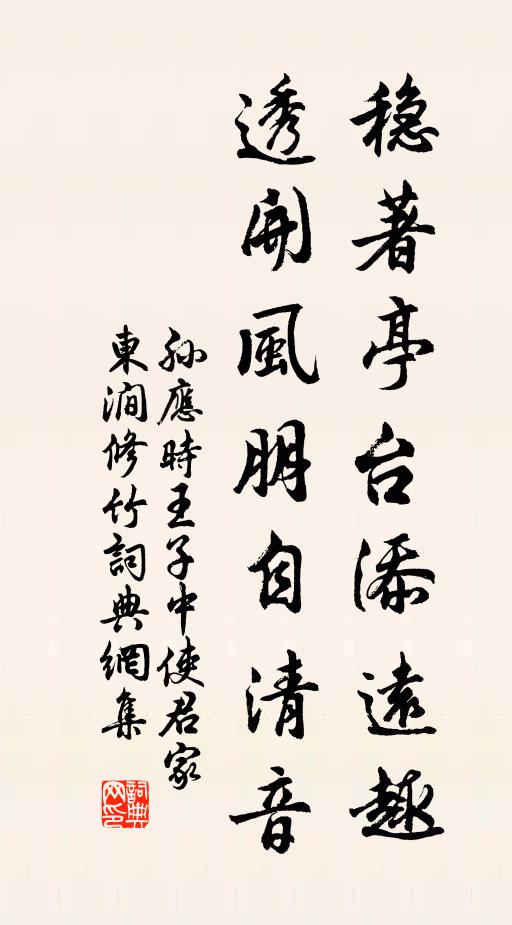 穩著亭台添遠趣
透開風朋自清音
孫應時王子中使君家
東澗修竹詞典網集
詞典
网印